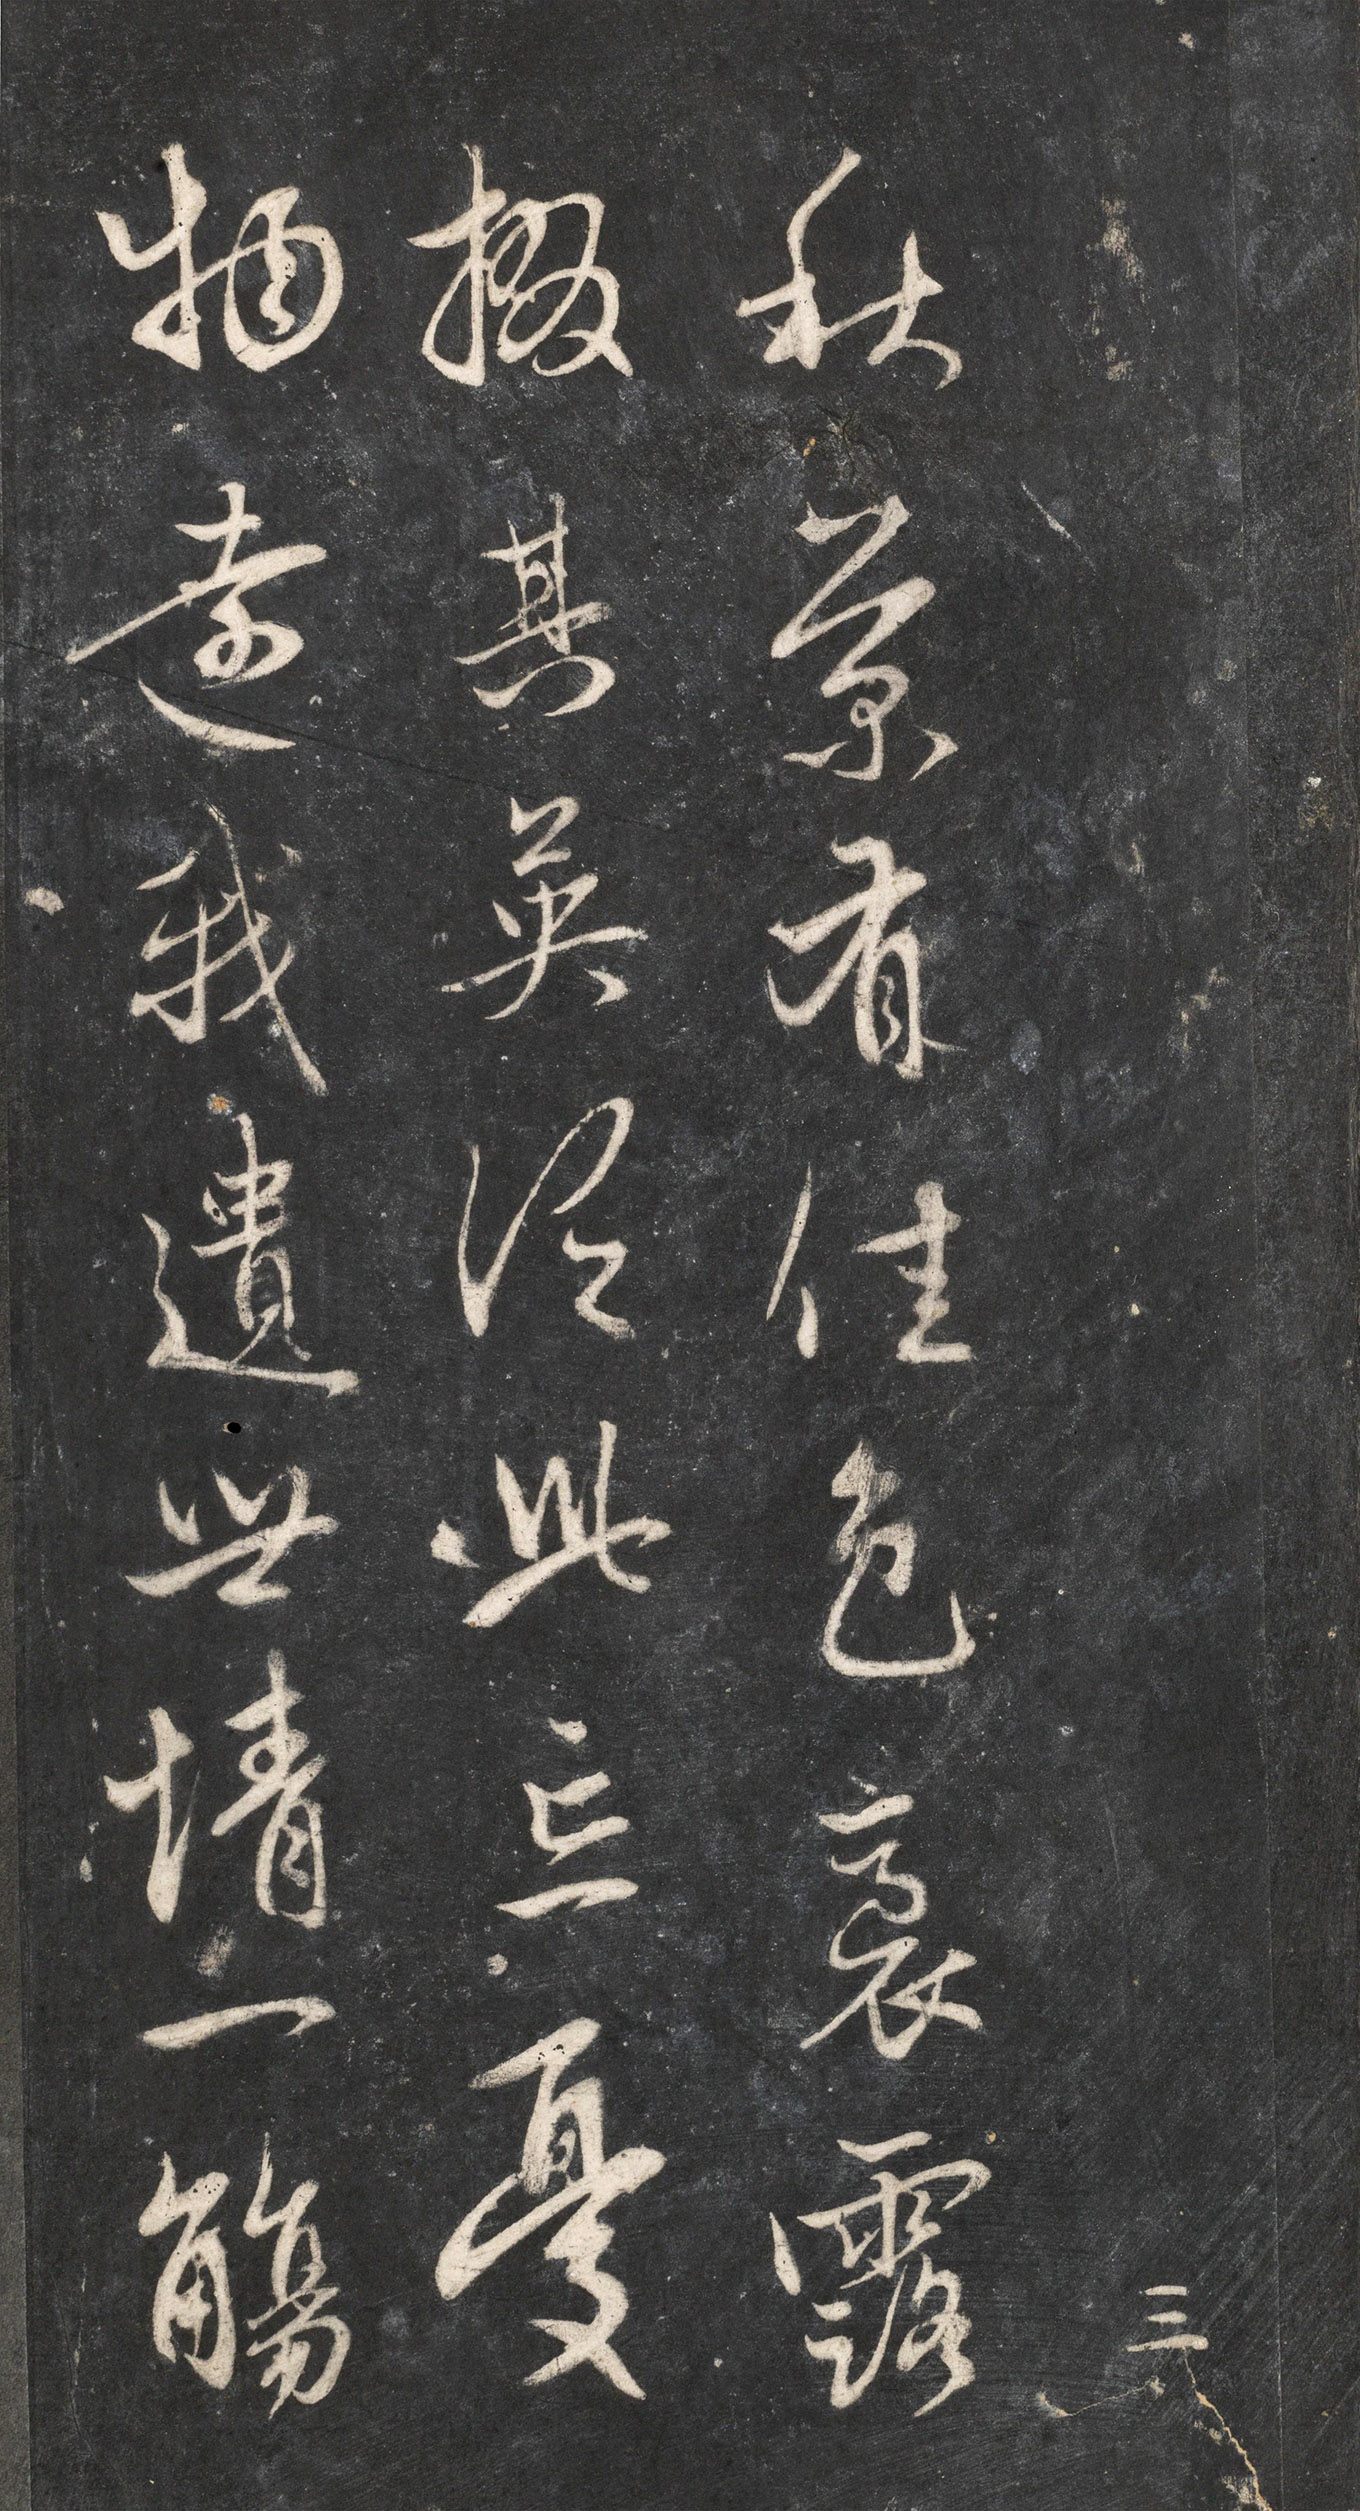 三
秋菊有佳色裛露
掇其英泛此忘憂
物遠我遺世情一觴